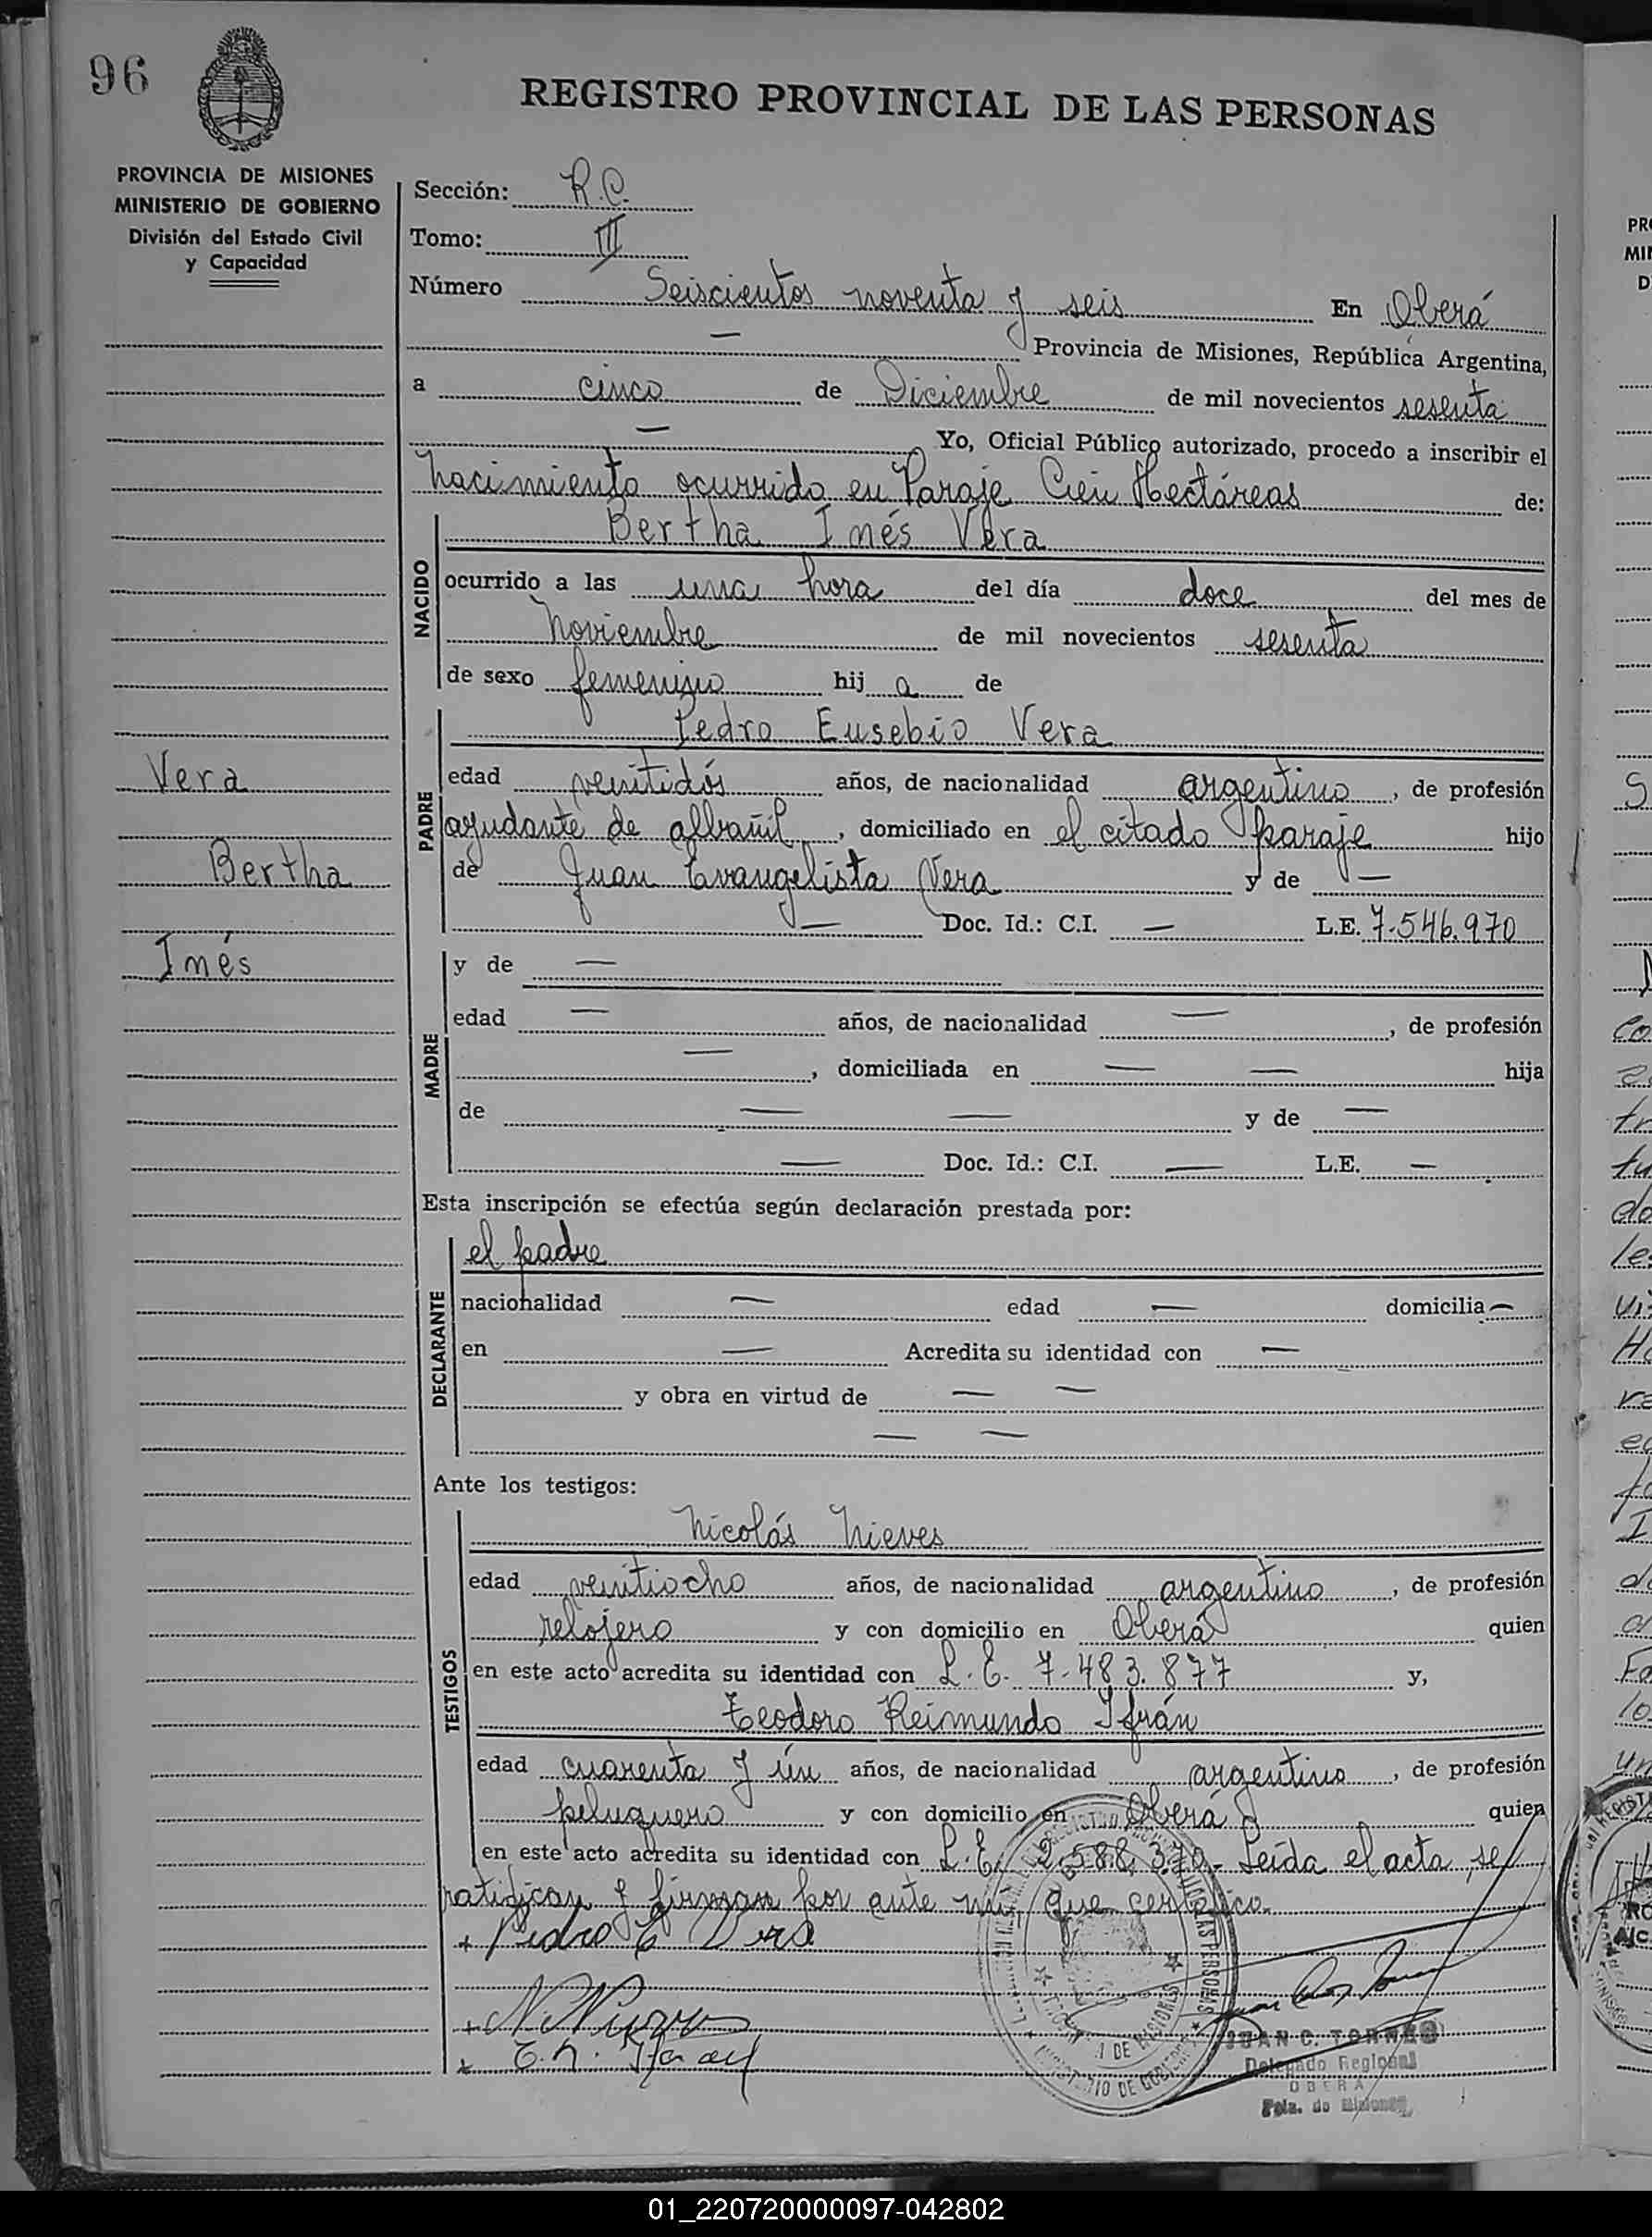 96
REGISTRO PROVINCIAL DE LAS PERSONAS
PROVINCIA DE MISIONES
MINISTERIO DE GOBIERNO
División del Estado Civil
y Capacidad
Sección: R.C.
Tomo: III
Número Seiscientos noventa y seis En Oberá
— Provincia de Misiones, República Argentina,
a cinco de Diciembre de mil novecientos sesenta
— Yo, Oficial Público autorizado, procedo a inscribir el
nacimiento ocurrido en Paraje Cien Hectáreas de:
NACIDO
Bertha Inés Vera
ocurrido a las una hora del día doce del mes de
Noviembre de mil novecientos sesenta
de sexo femenino hij a de
PADRE
Pedro Eusebio Vera
Vera
edad venitidós años, de nacionalidad argentino, de profesión
ayudante de albañil, domiciliado en el citado paraje hijo
Bertha
de Juan Evangelista Vera y de —
— Doc. Id.: C.I. — L.E. 7.546.970
Inés
MADRE
y de —
edad — años, de nacionalidad —, de profesión
—, domiciliada en — — hija
de — — y de —
— Doc. Id.: C.I. — L.E. —
Esta inscripción se efectúa según declaración prestada por:
DECLARANTE
el padre
nacionalidad — edad — domicilia —
en — Acredita su identidad con —
y obra en virtud de — —
— —
Ante los testigos:
TESTIGOS
Nicolás Nieves
edad venitiocho años, de nacionalidad argentino, de profesión
relojero y con domicilio en Oberá quien
en este acto acredita su identidad con L.E. 7.483.877 y,
Teodoro Reimundo Ifrán
edad cuarenta y ún años, de nacionalidad argentino, de profesión
peluquero y con domicilio en Oberá quien
en este acto acredita su identidad con L.E. 2.588.370.- Leída el acta se
ratifican y firman por ante mi, que certifico.
+ Pedro E Vera
JUAN C. TORRES
Delegado Regional
OBERA
Pcia. de Misiones
01_220720000097-042802